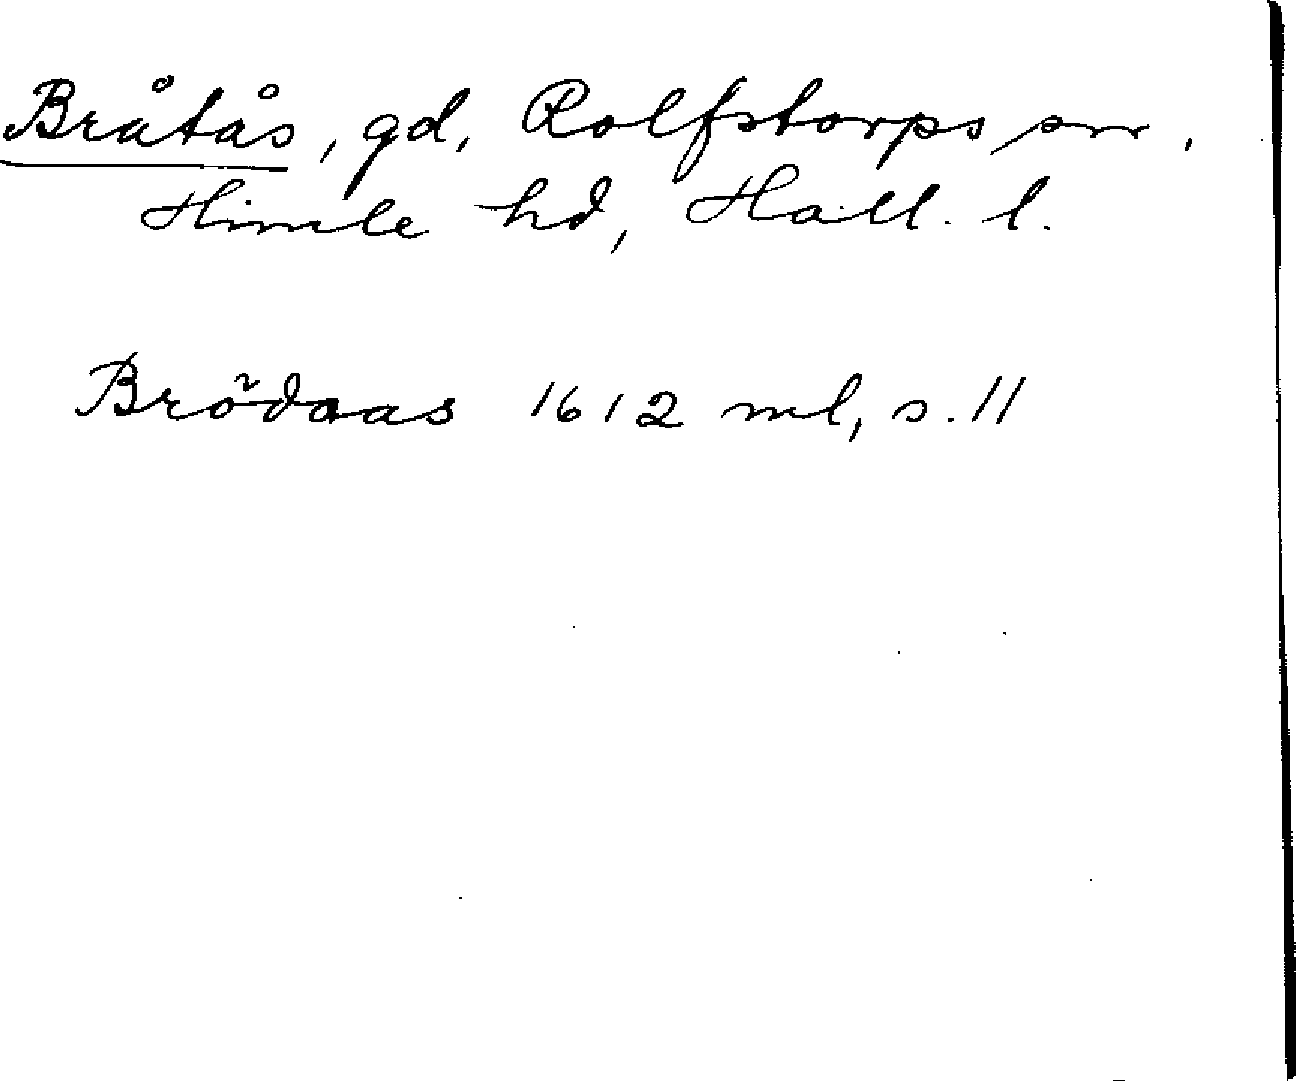 Bråtås, gd, Rolfstorps sn,
Himle hd, Hall. l.
Brödaas 1612 ml, s. 11